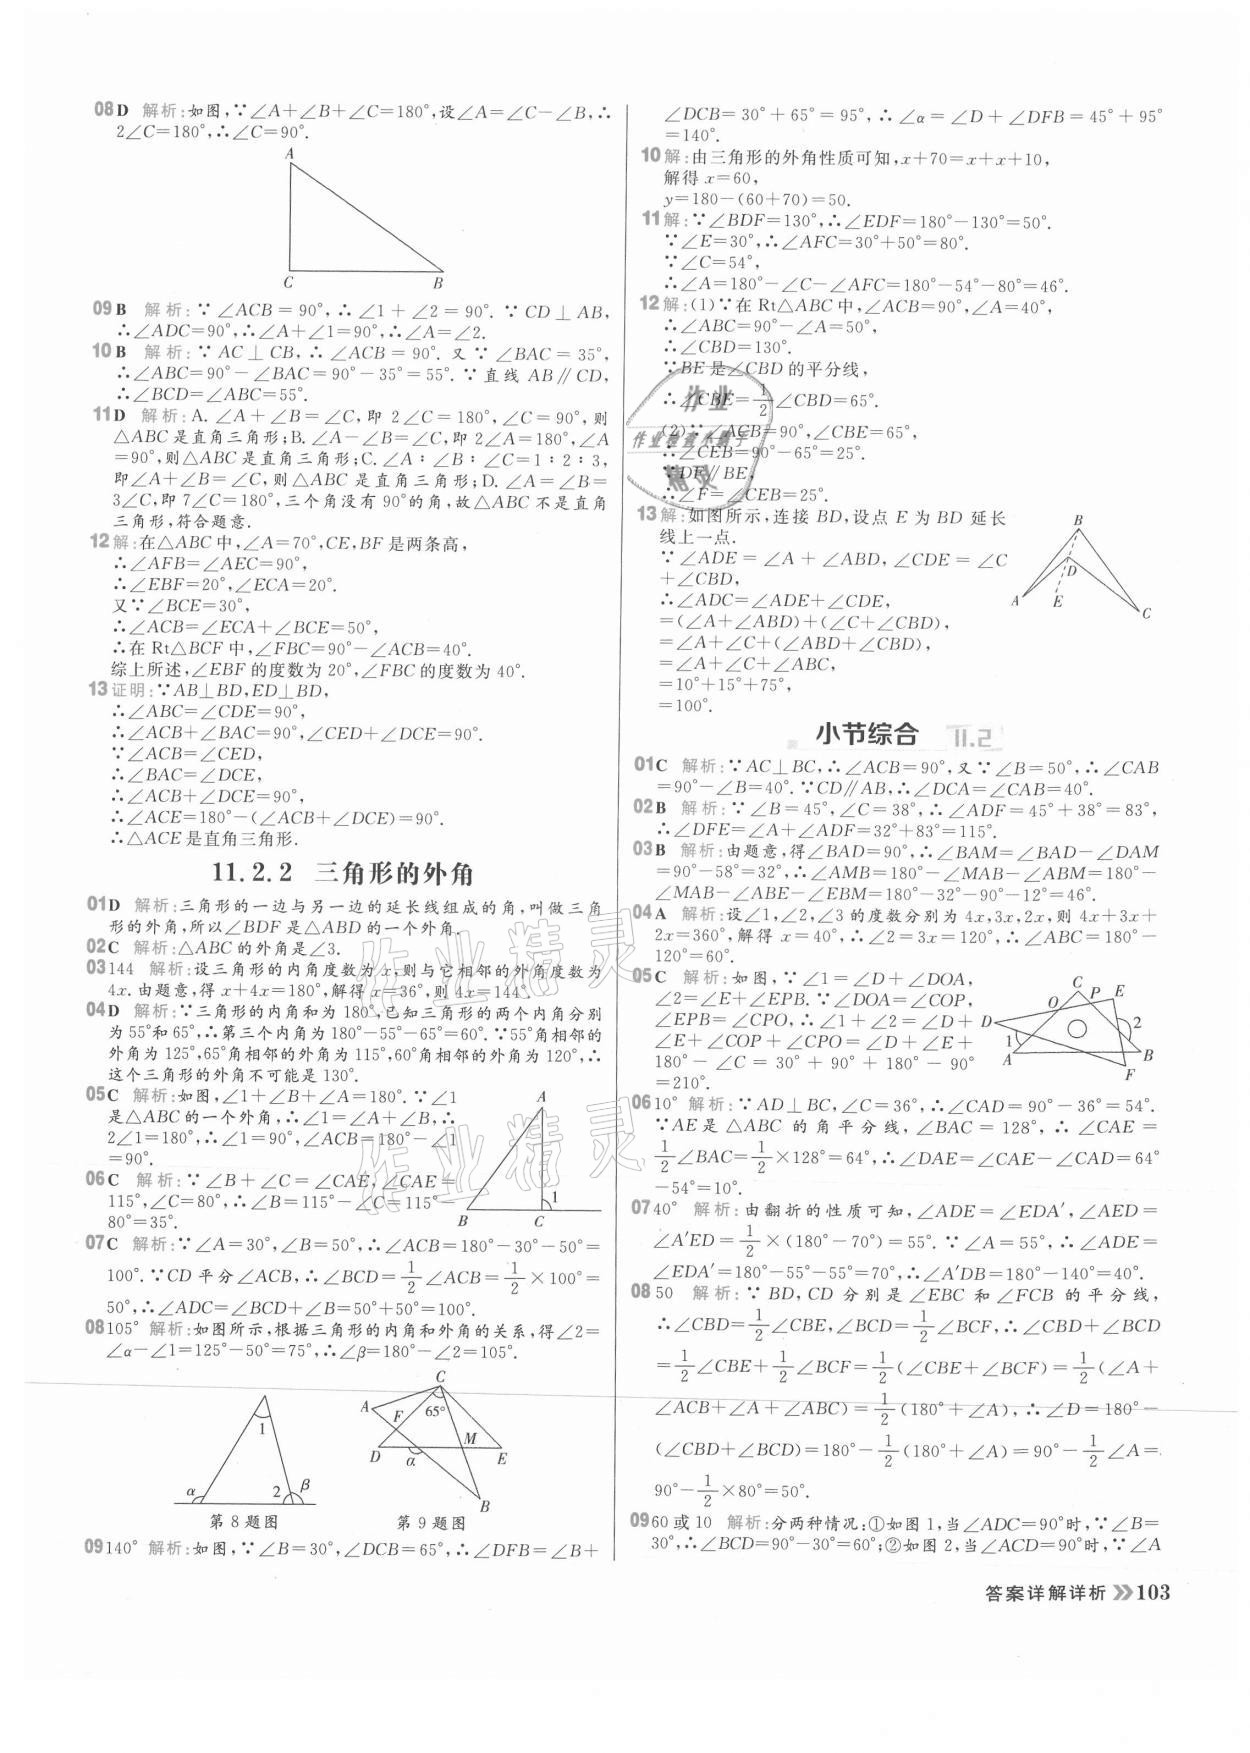 08 D 解析:如图,∵∠A+∠B+∠C=180°,设∠A=∠C-∠B,∴
2∠C=180°,∴∠C=90°.
A
C
B
09 B 解析:∵∠ACB=90°,∴∠1+∠2=90°.∵CD⊥AB,
∴∠ADC=90°,∴∠A+∠1=90°,∴∠A=∠2.
10 B 解析:∵AC⊥CB,∴∠ACB=90°.又∵∠BAC=35°,
∴∠ABC=90°-∠BAC=90°-35°=55°.∵直线AB∥CD,
∴∠BCD=∠ABC=55°.
11 D 解析:A.∠A+∠B=∠C,即2∠C=180°,∠C=90°,则
△ABC是直角三角形;B.∠A-∠B=∠C,即2∠A=180°,∠A
=90°,则△ABC是直角三角形;C.∠A∶∠B∶∠C=1∶2∶3,
即∠A+∠B=∠C,则△ABC是直角三角形;D.∠A=∠B=
3∠C,即7∠C=180°,三个角没有90°的角,故△ABC不是直角
三角形,符合题意.
12 解:在△ABC中,∠A=70°,CE,BF是两条高,
∴∠AFB=∠AEC=90°,
∴∠EBF=20°,∠ECA=20°.
又∵∠BCE=30°,
∴∠ACB=∠ECA+∠BCE=50°,
∴在Rt△BCF中,∠FBC=90°-∠ACB=40°.
综上所述,∠EBF的度数为20°,∠FBC的度数为40°.
13 证明:∵AB⊥BD,ED⊥BD,
∴∠ABC=∠CDE=90°,
∴∠ACB+∠BAC=90°,∠CED+∠DCE=90°.
∵∠ACB=∠CED,
∴∠BAC=∠DCE,
∴∠ACB+∠DCE=90°,
∴∠ACE=180°-(∠ACB+∠DCE)=90°.
∴△ACE是直角三角形.
11.2.2 三角形的外角
01 D 解析:三角形的一边与另一边的延长线组成的角,叫做三角
形的外角,所以∠BDF是△ABD的一个外角.
02 C 解析:△ABC的外角是∠3.
03 144 解析:设三角形的内角度数为x,则与它相邻的外角度数为
4x.由题意,得x+4x=180°,解得x=36°,则4x=144°.
04 D 解析:∵三角形的内角和为180°,已知三角形的两个内角分别
为55°和65°,∴第三个内角为180°-55°-65°=60°.∵55°角相邻的
外角为125°,65°角相邻的外角为115°,60°角相邻的外角为120°,∴
这个三角形的外角不可能是130°.
05 C 解析:如图,∠1+∠B+∠A=180°.∵∠1
是△ABC的一个外角,∴∠1=∠A+∠B,∴
2∠1=180°,∴∠1=90°,∠ACB=180°-∠1
=90°.
A
B
C
1
06 C 解析:∵∠B+∠C=∠CAE,∠CAE=
115°,∠C=80°,∴∠B=115°-∠C=115°-
80°=35°.
07 C 解析:∵∠A=30°,∠B=50°,∴∠ACB=180°-30°-50°=
100°.∵CD平分∠ACB,∴∠BCD=1/2∠ACB=1/2×100°=
50°,∴∠ADC=∠BCD+∠B=50°+50°=100°.
08 105° 解析:如图所示,根据三角形的内角和外角的关系,得∠2=
∠α-∠1=125°-50°=75°,∴∠β=180°-∠2=105°.
1
α
2
β
第8题图
C
A
F
65°
M
D
α
E
B
第9题图
09 140° 解析:如图,∵∠B=30°,∠DCB=65°,∴∠DFB=∠B+
∠DCB=30°+65°=95°,∴∠α=∠D+∠DFB=45°+95°
=140°.
10 解:由三角形的外角性质可知,x+70=x+x+10,
解得x=60,
y=180-(60+70)=50.
11 解:∵∠BDF=130°,∴∠EDF=180°-130°=50°.
∵∠E=30°,∴∠AFC=30°+50°=80°.
∵∠C=54°,
∴∠A=180°-∠C-∠AFC=180°-54°-80°=46°.
12 解:(1)∵在Rt△ABC中,∠ACB=90°,∠A=40°,
∴∠ABC=90°-∠A=50°,
∴∠CBD=130°.
∵BE是∠CBD的平分线,
∴∠CBE=1/2∠CBD=65°.
(2)∵∠ACB=90°,∠CBE=65°,
∴∠CEB=90°-65°=25°.
∵DF∥BE,
∴∠F=∠CEB=25°.
13 解:如图所示,连接BD,设点E为BD延长
线上一点.
∵∠ADE=∠A+∠ABD,∠CDE=∠C
+∠CBD,
∴∠ADC=∠ADE+∠CDE,
=(∠A+∠ABD)+(∠C+∠CBD),
=∠A+∠C+(∠ABD+∠CBD),
=∠A+∠C+∠ABC,
=10°+15°+75°,
=100°.
B
D
A
E
C
小节综合 11.2
01 C 解析:∵AC⊥BC,∴∠ACB=90°,又∵∠B=50°,∴∠CAB
=90°-∠B=40°.∵CD∥AB,∴∠DCA=∠CAB=40°.
02 B 解析:∵∠B=45°,∠C=38°,∴∠ADF=45°+38°=83°,
∴∠DFE=∠A+∠ADF=32°+83°=115°.
03 B 解析:由题意,得∠BAD=90°,∴∠BAM=∠BAD-∠DAM
=90°-58°=32°,∴∠AMB=180°-∠MAB-∠ABM=180°-
∠MAB-∠ABE-∠EBM=180°-32°-90°-12°=46°.
04 A 解析:设∠1,∠2,∠3的度数分别为4x,3x,2x,则4x+3x+
2x=360°,解得x=40°,∴∠2=3x=120°,∴∠ABC=180°-
120°=60°.
05 C 解析:如图,∵∠1=∠D+∠DOA,
∠2=∠E+∠EPB.∵∠DOA=∠COP,
∠EPB=∠CPO,∴∠1+∠2=∠D+
∠E+∠COP+∠CPO=∠D+∠E+
180°-∠C=30°+90°+180°-90°
=210°.
C
P
E
O
D
1
2
A
B
F
06 10° 解析:∵AD⊥BC,∠C=36°,∴∠CAD=90°-36°=54°.
∵AE是△ABC的角平分线,∠BAC=128°,∴∠CAE=
1/2∠BAC=1/2×128°=64°,∴∠DAE=∠CAE-∠CAD=64°
-54°=10°.
07 40° 解析:由翻折的性质可知,∠ADE=∠EDA′,∠AED=
∠A′ED=1/2×(180°-70°)=55°.∵∠A=55°,∴∠ADE=
∠EDA′=180°-55°-55°=70°,∴∠A′DB=180°-140°=40°.
08 50 解析:∵BD,CD分别是∠EBC和∠FCB的平分线,
∴∠CBD=1/2∠CBE,∠BCD=1/2∠BCF,∴∠CBD+∠BCD
=1/2∠CBE+1/2∠BCF=1/2(∠CBE+∠BCF)=1/2(∠A+
∠ACB+∠A+∠ABC)=1/2(180°+∠A),∴∠D=180°-
(∠CBD+∠BCD)=180°-1/2(180°+∠A)=90°-1/2∠A=
90°-1/2×80°=50°.
09 60或10 解析:分两种情况:①如图1,当∠ADC=90°时,∵∠B=
30°,∴∠BCD=90°-30°=60°;②如图2,当∠ACD=90°时,∵∠A
答案详解详析 103
作业精灵
作业精灵
作业
作业检查小帮手
精灵